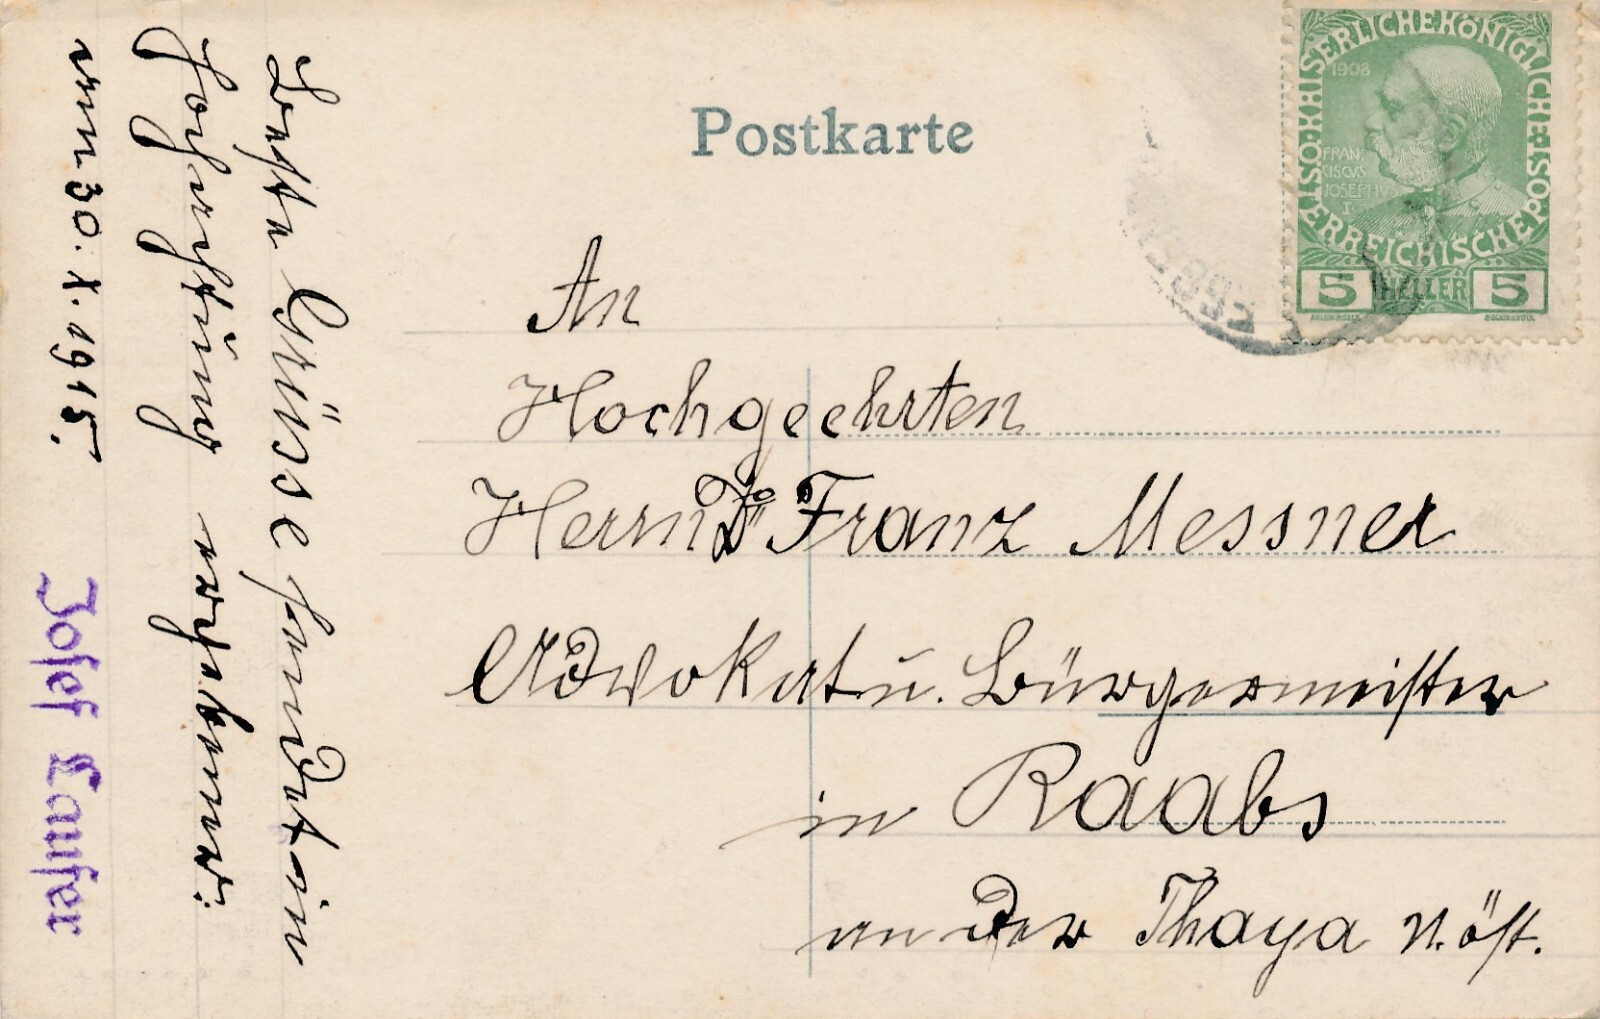 Postkarte
KAISERLICHE KÖNIGLICHE
ÖSTERREICHISCHE POST
1908
FRAN-
CISCVS
JOSEPHVS
I.
5 HELLER 5
An
Hochgeehrten
Herrn Dr Franz Messner
Advokat u. Bürgermeister
in Raabs
an der Thaya N. öst.
Beste Grüsse sendet in
Hochachtung ergebener:
am 30. X. 1915.
Josef Lauser